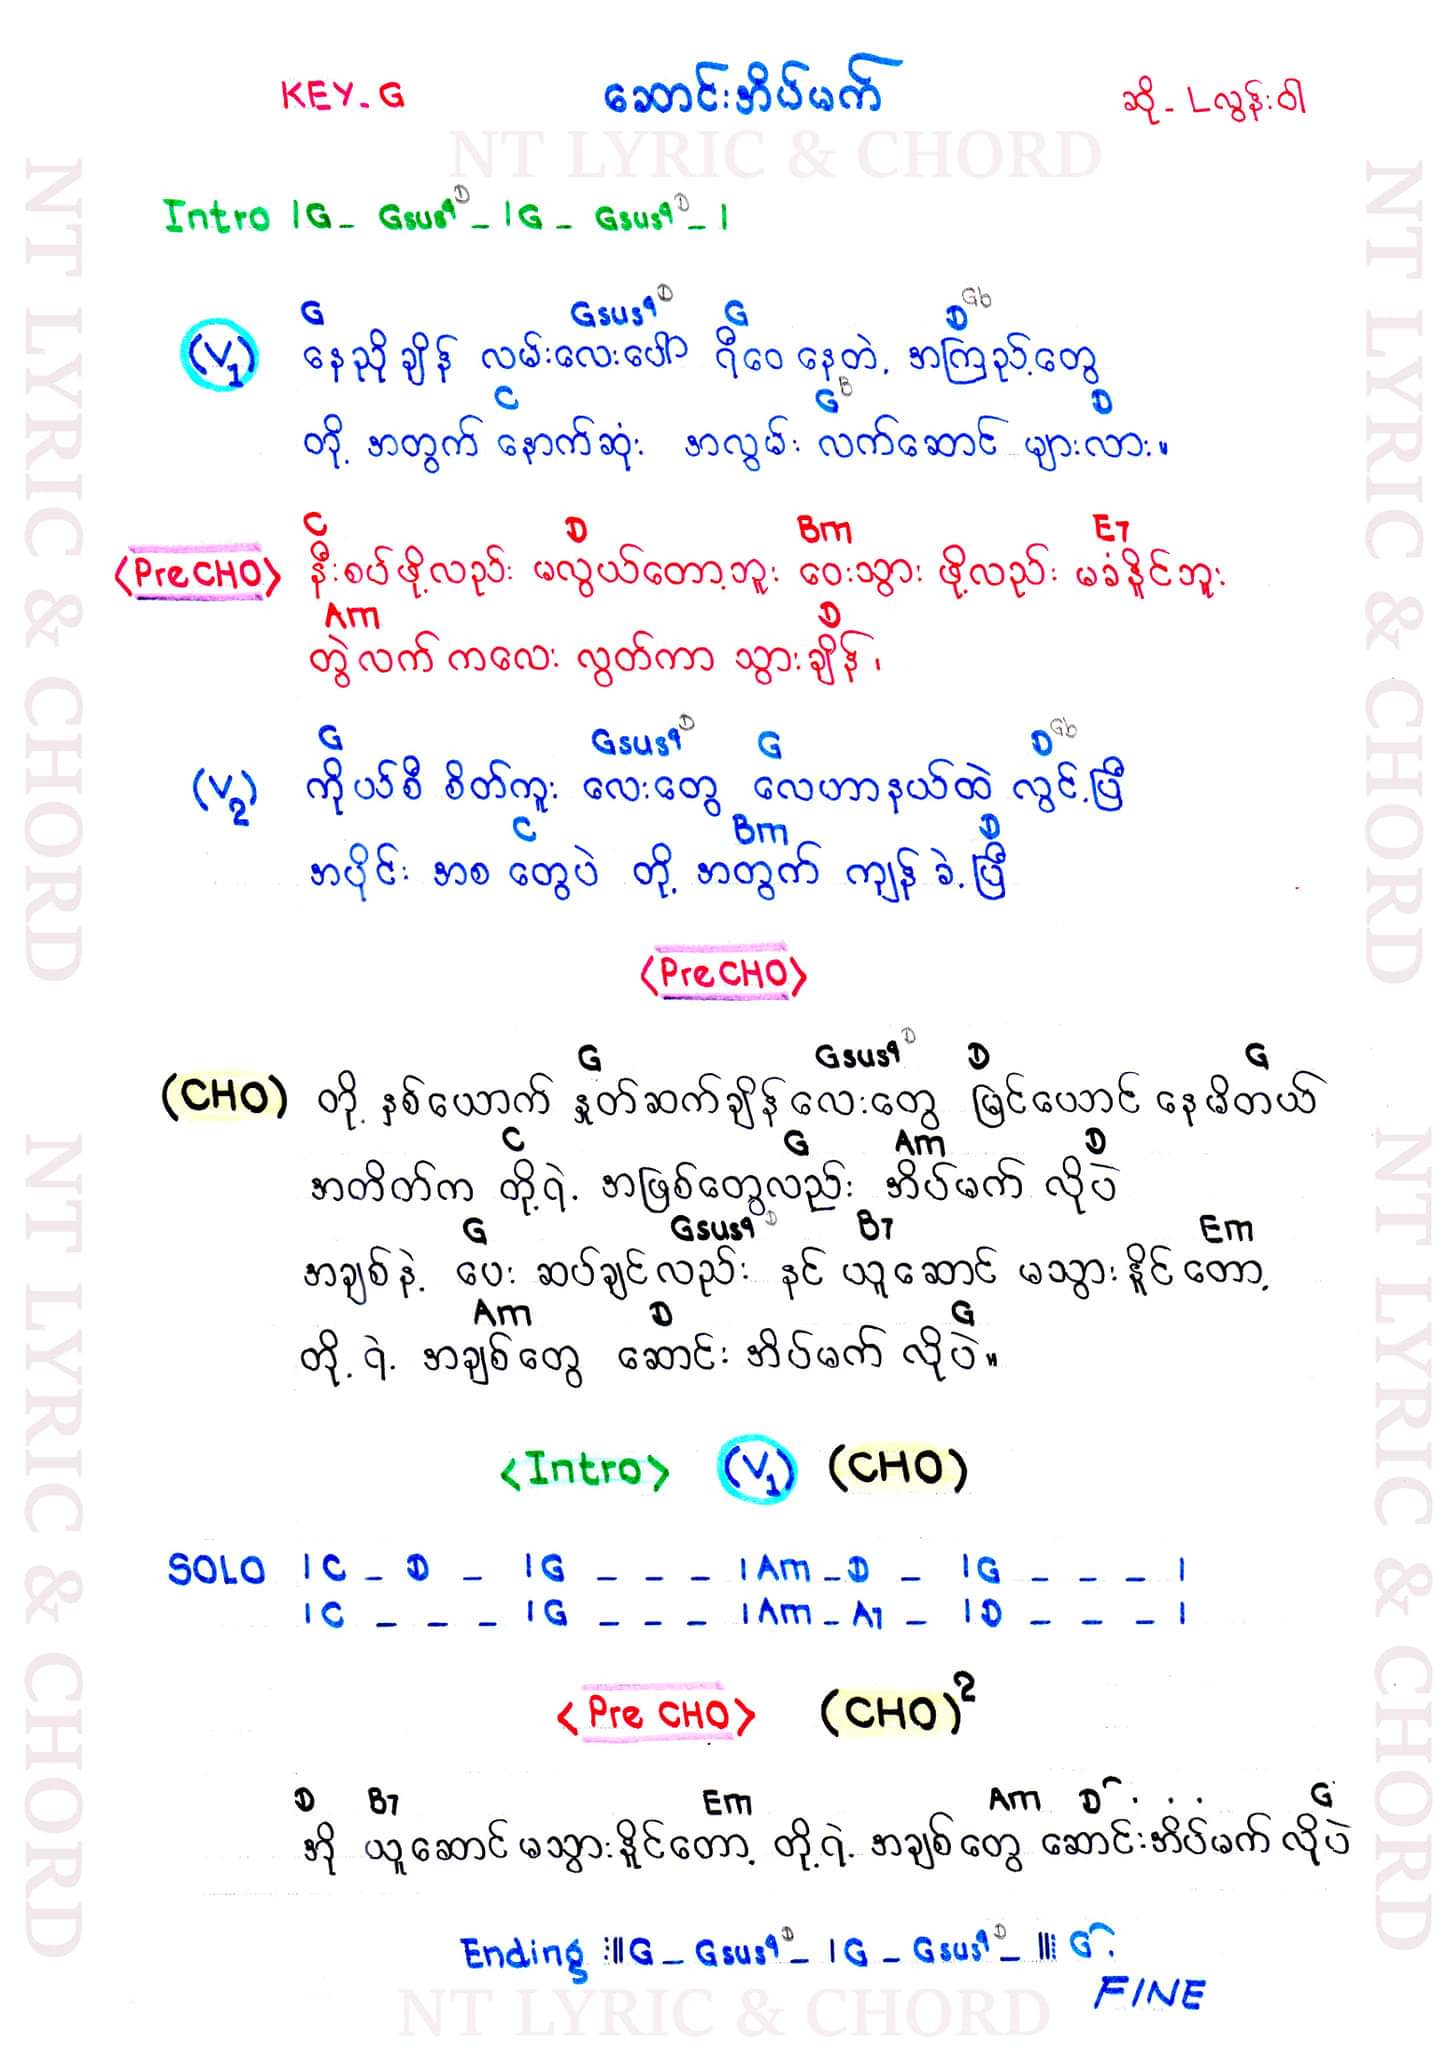 KEY_G ဆောင်းအိပ်မက် ဆို_ Lလွန်းဝါ
NT LYRIC & CHORD
Intro |G_ Gsus4 D_ |G_ Gsus4 D_ |
G Gsus4 D G D Gb
(V1) နေညိုချိန် လမ်းလေးပေါ် ရီဝေနေတဲ့ အကြည့်တွေ
C G B D
တို့အတွက် နောက်ဆုံး အလွမ်း လက်ဆောင် များလား။
C D Bm E7
<PreCHO> နီးစပ်ဖို့လည်း မလွယ်တော့ဘူး ဝေးသွား ဖို့လည်း မခံနိူင်ဘူး
Am D
တွဲလက် ကလေး လွတ်ကာ သွားချိန်၊
G Gsus4 D G D Gb
(V2) ကိုယ်စီ စိတ်ကူး လေးတွေ လေဟာနယ်ထဲ လွင့်ပြီ
C Bm D
အပိုင်း အစ တွေပဲ တို့ အတွက် ကျန်ခဲ့ပြီ
<PreCHO>
G Gsus4 D D G
(CHO) တို့ နှစ်ယောက် နှုတ်ဆက်ချိန်လေးတွေ မြင်ယောင် နေမိတယ်
C G Am D
အတိတ်က တို့ရဲ့ အဖြစ်တွေလည်း အိပ်မက် လိုပဲ
G Gsus4 D B7 Em
အချစ်နဲ့ ပေး ဆပ်ချင်လည်း နင် ယူဆောင် မသွားနိူင်တော့
Am D G
တို့ ရဲ့ အချစ်တွေ ဆောင်း အိပ်မက် လိုပဲ။
<Intro> (V1) (CHO)
SOLO |C _ D _ |G _ _ _ |Am _ D _ |G _ _ _ |
|C _ _ _ |G _ _ _ |Am _ A7 _ |D _ _ _ |
<Pre CHO> (CHO)2
D B7 Em Am D . . . G
အို ယူဆောင်မသွားနိူင်တော့ တို့ရဲ့ အချစ်တွေ ဆောင်းအိပ်မက် လိုပဲ
Ending :||G _ Gsus4 D_ |G _ Gsus4 D_ ||: G.
FINE
NT LYRIC & CHORD
NT LYRIC & CHORD
NT LYRIC & CHORD
NT LYRIC & CHORD
NT LYRIC & CHORD